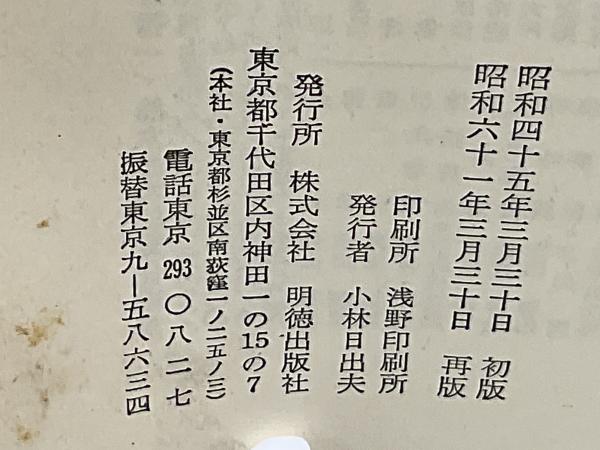 昭和四十五年三月三十日 初版
昭和六十一年三月三十日 再版
印刷所 浅野印刷所
発行者 小林日出夫
発行所 株式会社 明徳出版社
東京都千代田区内神田一の15の7
(本社・東京都杉並区南荻窪一ノ二五ノ三)
電話東京 293 〇八二七
振替東京九―五八六三四